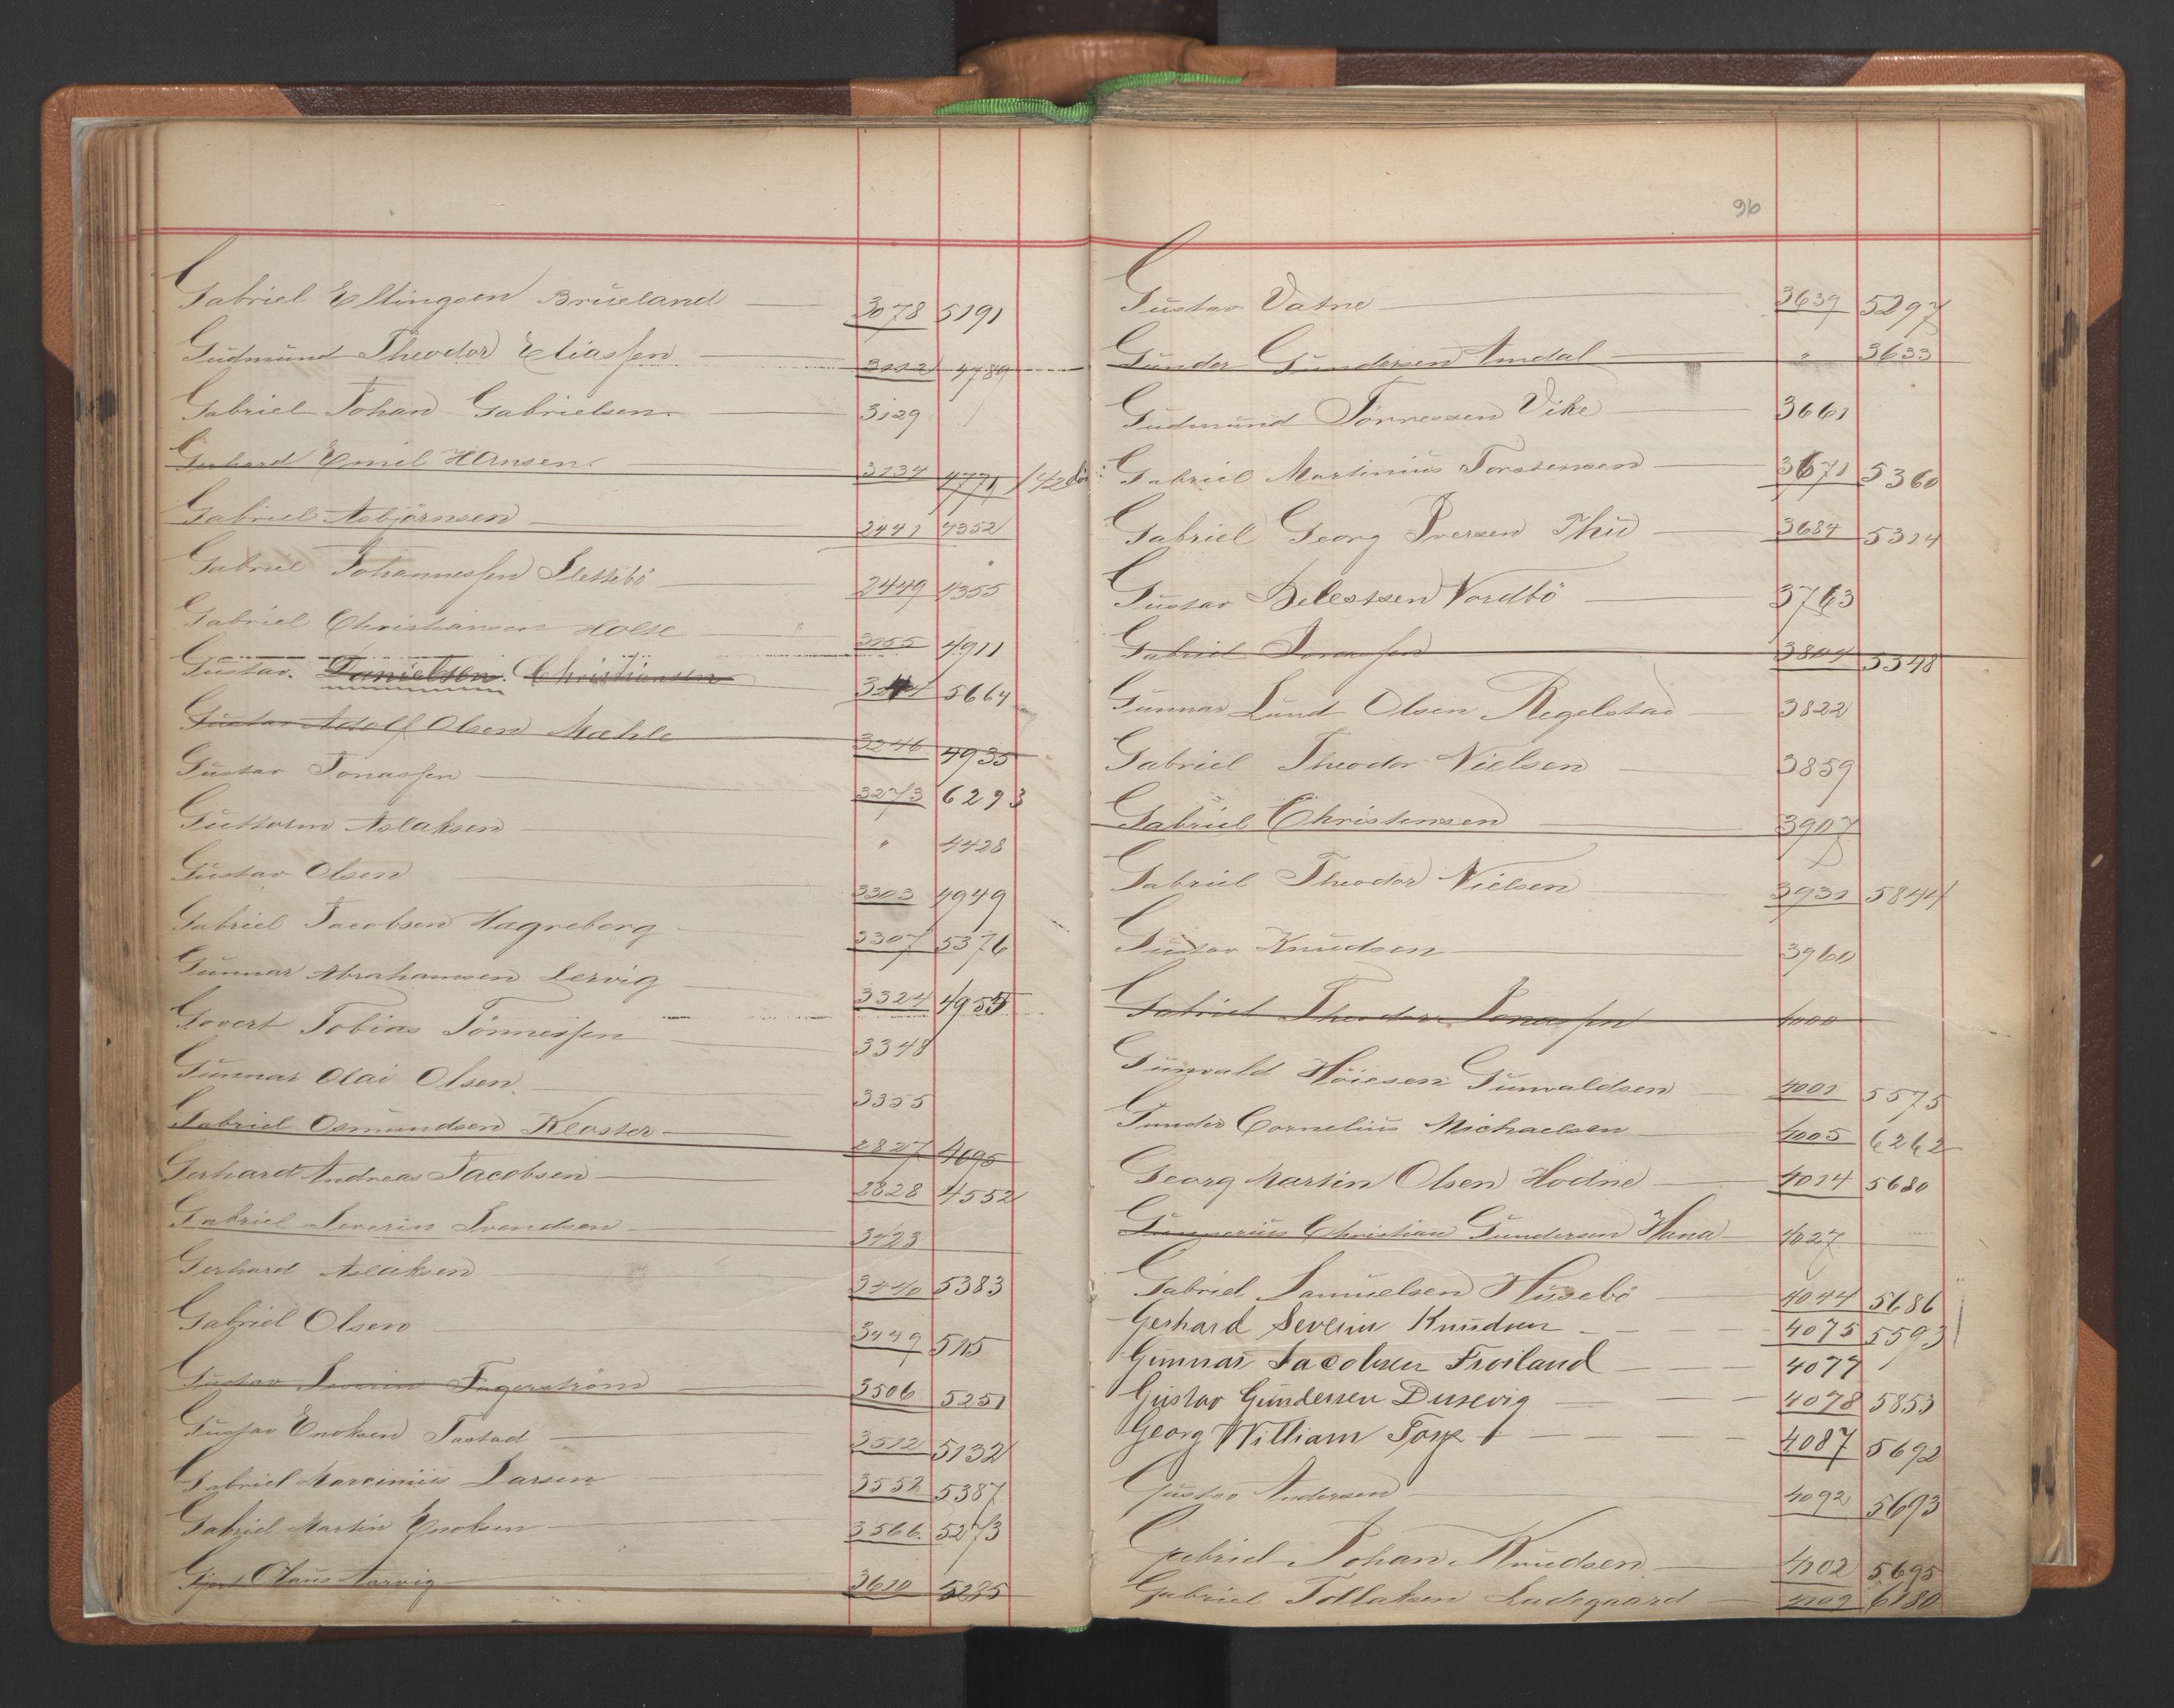 Gabriel Ellingsen Brueland 3078 5191
Gudmund Theodor Eliassen 3112 4789
Gabriel Johan Gabrielsen 3129
Gerhard Emil Hansen 3134 4771
Gabriel Asbjörnsen 2441 4352
Gabriel Johannessen Slettebö 2449 4355
Gabriel Christiansen Holse 3155 4911
Gustav Danielsen Christiansen 5664
Gustav Adolf Olsen Mæhle 3246 4935
Gustav Jonassen 3273 6293
Guttorm Aslaksen " 4428
Gustav Olsen 3303 4949
Gabriel Jacobsen Hagreberg 3307 5376
Gunnar Abrahamsen Lervig 3324 4955
Govert Tobias Tönnessen 3348
Gunnar Olai Olsen 3355
Gabriel Osmundsen Kloster 2827 4695
Gerhard Andreas Jacobsen 2828 4552
Gabriel Severin Svendsen 3423
Gerhard Aslaksen 3440 5383
Gabriel Olsen 3449 5115
Gustav Severin Fagerström 3506 5251
Gustav Enoksen Tastad 3512 5132
Gabriel Marcinius Larsen 3552 5387
Gabriel Martin Enoksen 3566 5273
Gjert Claus Aarvig 3610 5235
96
Gustav Vatne 3639 5297
Gunder Gundersen Amdal " 3633
Gudmund Tönnessen Vike 3661
Gabriel Martinius Torstensen 3671 5360
Gabriel Georg Iversen Thu 3684 5314
Gustav Selestsen Nordbö 3763
Gabriel Jonassen 3804 5348
Gunnar Lund Olsen Regelstad 3822
Gabriel Theodor Nielsen 3859
Gabriel Christensen 3907
Gabriel Theodor Nielsen 3931 5844
Gustav Knudsen 3960
Gabriel Theodor Jonassen 4000
Gunvald Höiesen Gunvaldsen 4001 5575
Gunder Cornelius Michaelsen 4005 6262
Georg Martin Olsen Hodne 4014 5680
Gunnerius Christian Gundersen Hana 4027
Gabriel Samuelsen Husebö 4044 5686
Gerhard Severin Knudsen 4075 5593
Gunnar Jacobsen Froiland 4077
Gustav Gundersen Dusevig 4078 5853
Georg William 4087 5692
Gustav Andersen 4092 5693
Gabriel Johan Knudsen 4102 5695
Gabriel Tollaksen Ladegaard 4109 6180